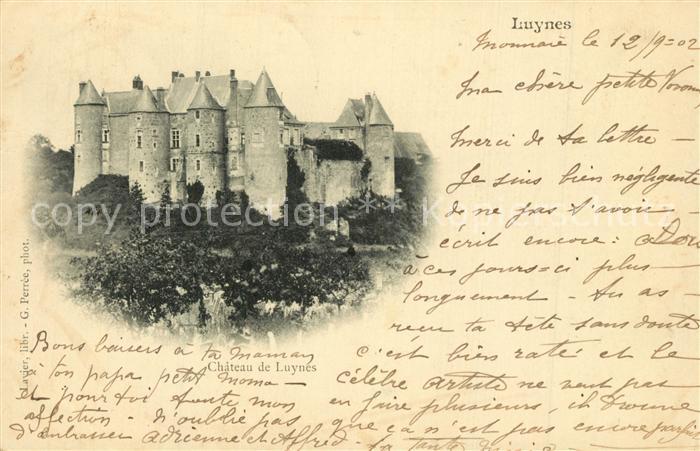 Luynes
Monnaie le 12/9=02
Ma chère petite
Merci de ta lettre —
Je suis bien négligente
de ne pas t'avoir
écrit encore: a
à ces jours=ci plus
longuement — Tu as
reçu ta tête sans doute
c'est bien raté et le
célèbre artiste ne veut pas
en faire plusieurs, il trouve
que ça n'est pas encore parfait
ta tante
Bons baisers à ta Maman
à ton papa petit Momo —
et pour toi toute mon
affection — n'oublie pas
d'embrasser Adrienne et Alfred —
Château de Luynès
libr. - G. Perrée, phot.
copyright